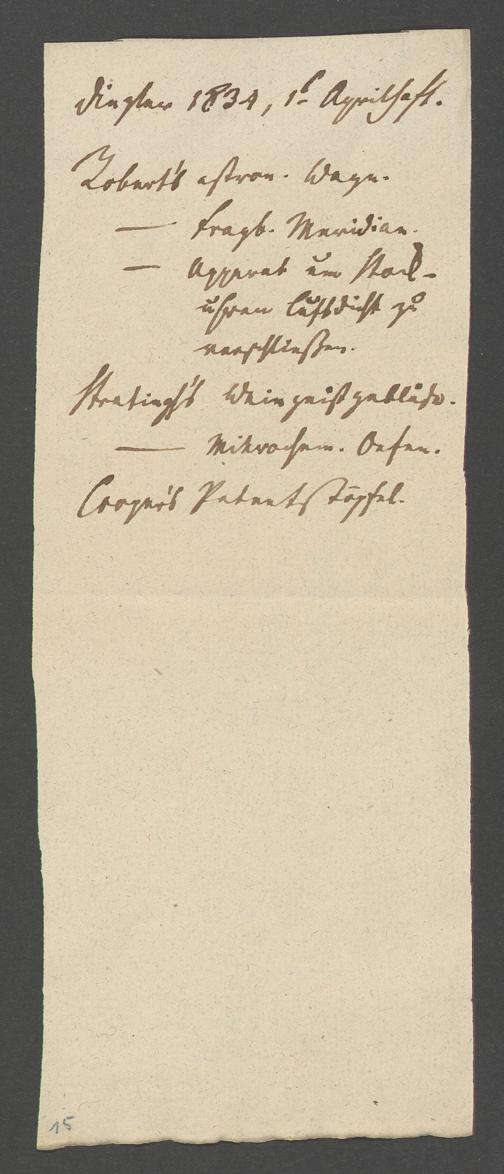 Dingler 1834, 1s Aprilheft.
Robert's astron. Wage.
— tragb. Meridian.
— Apparat um Stock-
uhren luftdicht zu
verschließen.
Stratingh's Weingeistgebläse.
— Mikrochem. Oefen.
Cooper's Patentstöpsel.
15